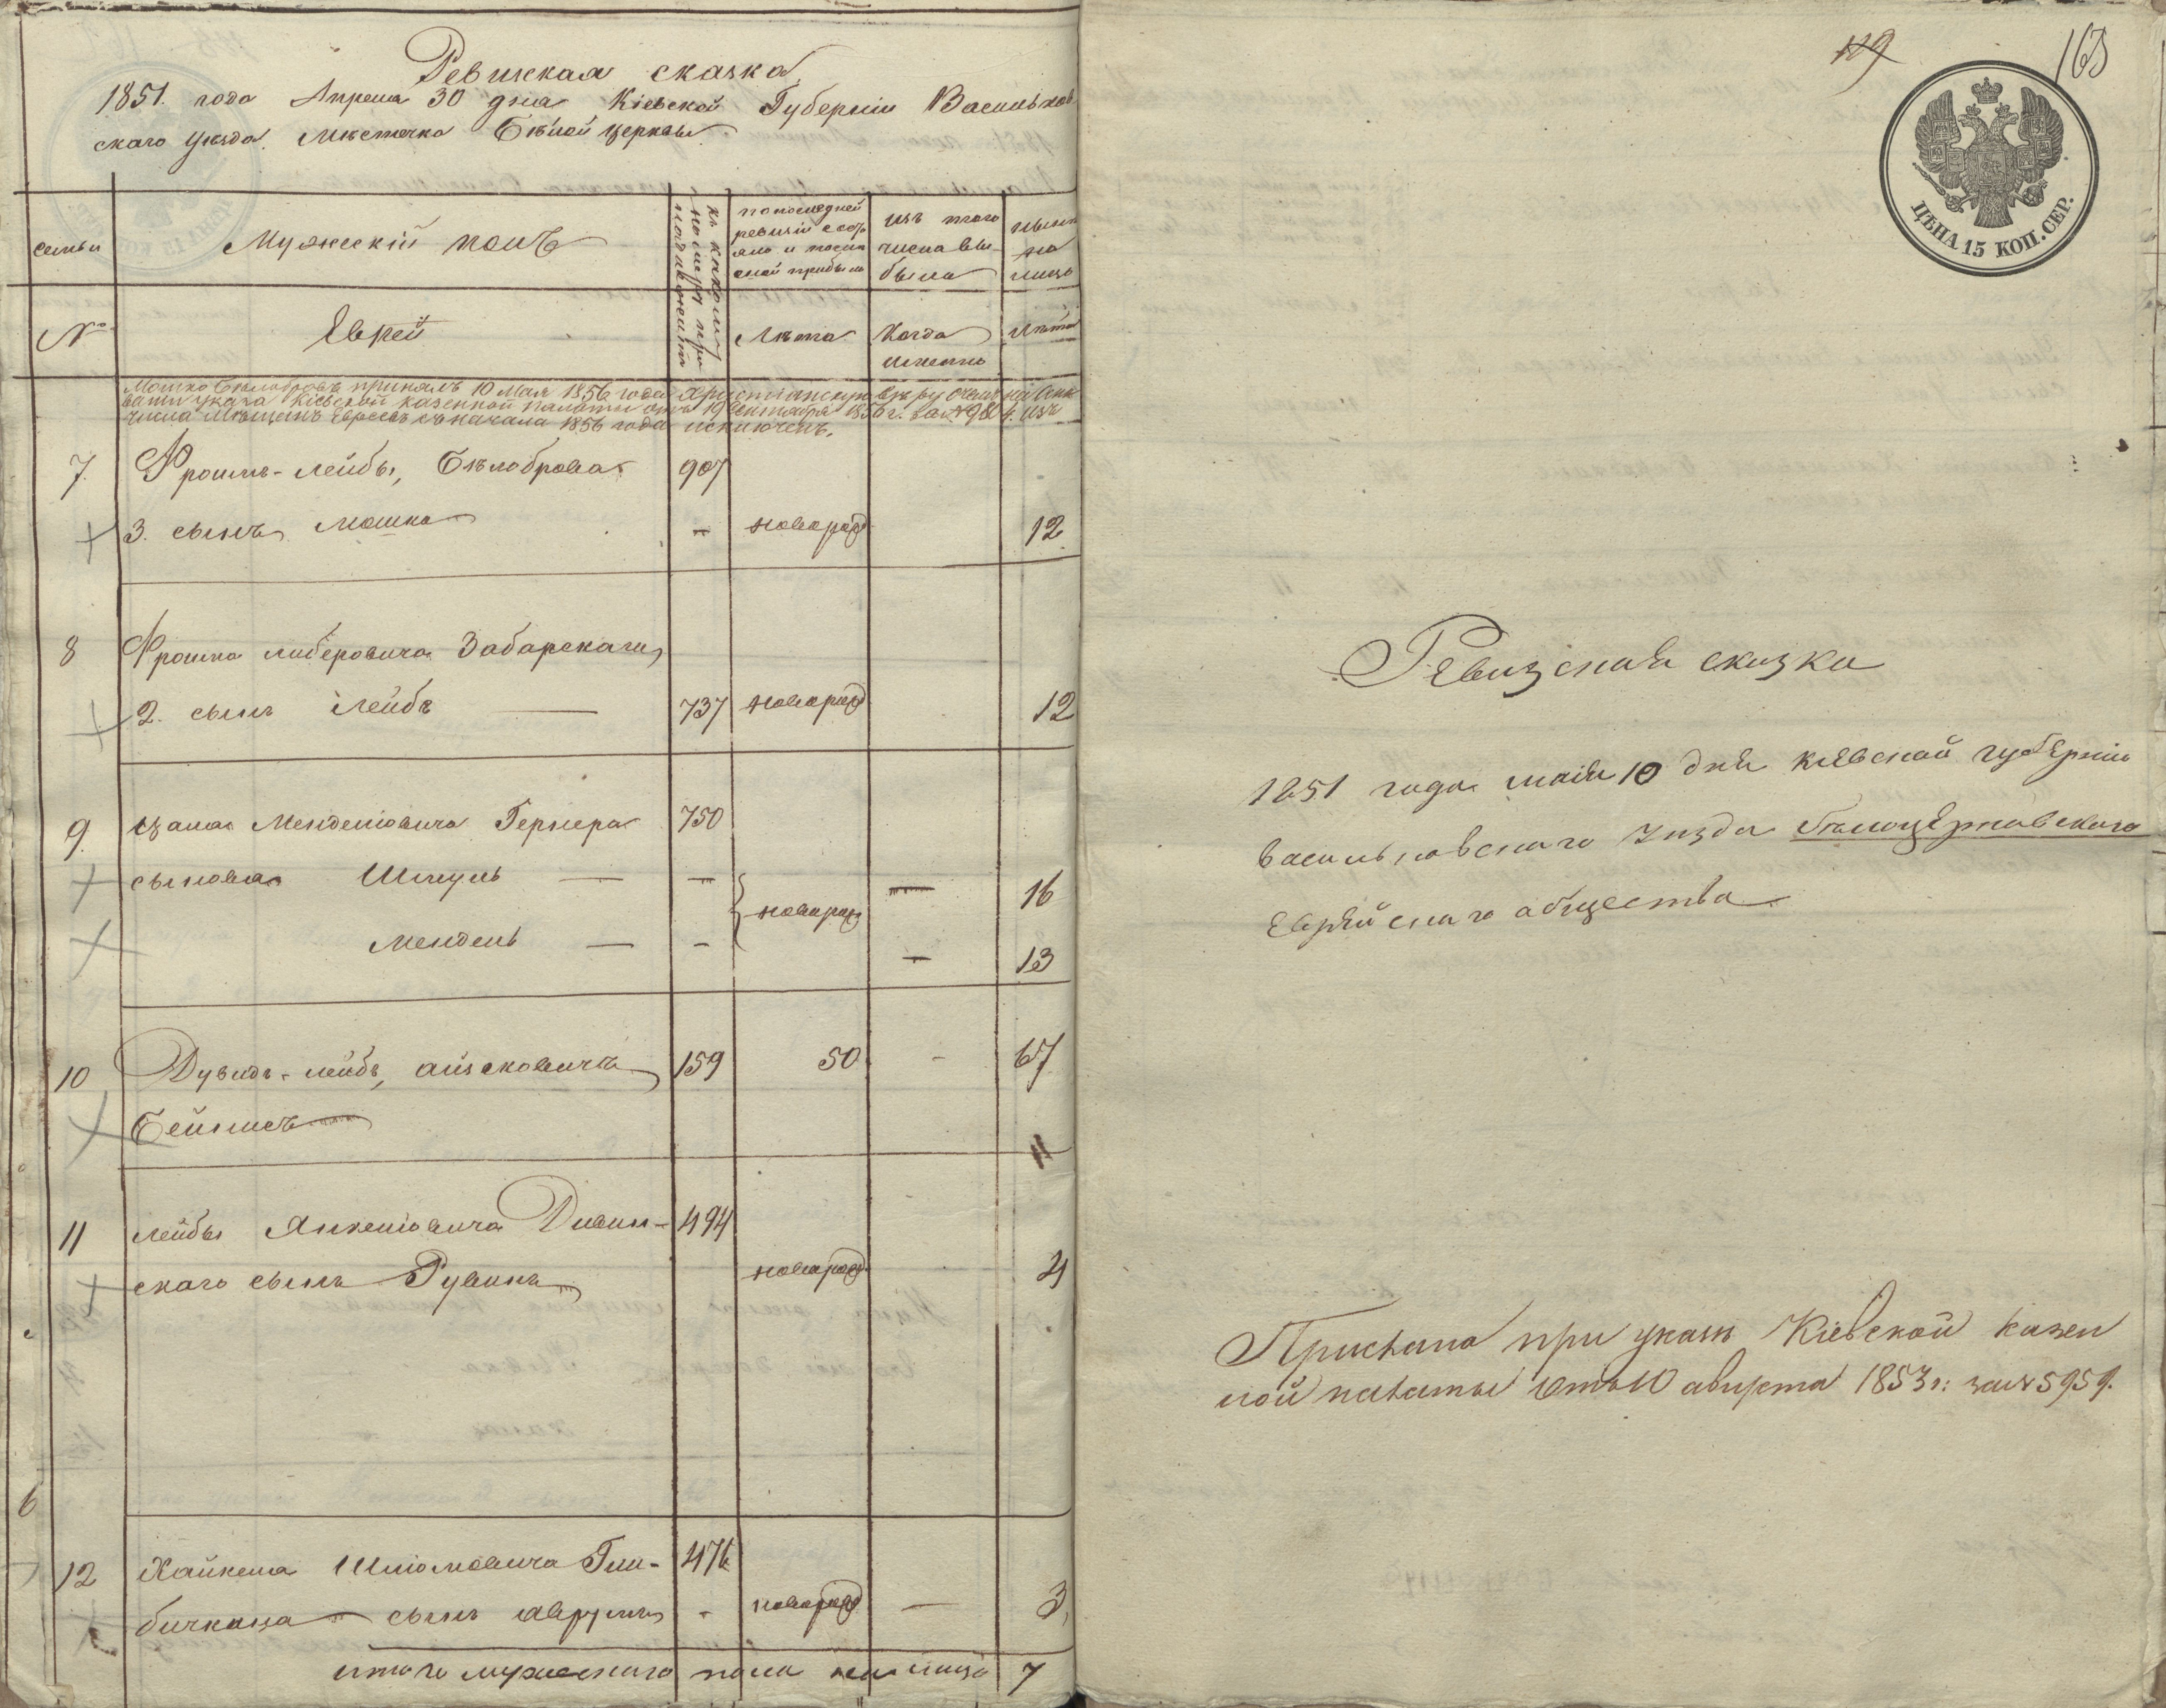 Ревизская сказка
1851. года Апреля 30 дня Кіевской Губерніи Васильков
скаго уѣзда. Мѣстечка Бѣлой церквы
семьи
Мужескій полъ
къ какому
номеру при
надлежитъ
по последней
ревизіи состо
яло и после
оной прибыло
изъ того
числа вы-
было
ныне
на
лицо
№
Еврей
Лѣта
Когда
именно
лѣта
Мошко Бѣлобровъ принялъ 10 Мая 1856 года Христіанскую вѣру
указа Кіевской казенной палаты отъ 19 Сентября 1856 г. за № изъ
числа Мѣщанъ Евреевъ съ начала 1856 года исключенъ.
7. Фроимъ-Лейбы, Бѣлоброва 907
3. сынъ Мошко - новорож 12
8 Фроима Либеровича Забарскаго
2. сынъ Лейбъ — 737 новорож 12
9. Менделіовича Гернера 750
сыновья Шмуль — — новорож — 16
Мендель — - — 13
10 Дувидъ-лейбъ, Айзековичъ 159 50 - 67
Бейлисъ
11 Лейбы Янкеліовича Дивин- 494
скаго сынъ Рувинъ новорож. 4
6
12 Хайкеля Шліомовича Гли- 476
сынъ Аврумъ - новорож — 3
итого мужескаго пола на лицо 7
119
163
ЦѢНА 15 КОП. СЕР.
Ревизская сказка
1851 года маія 10 дня кіевской губерніи
васильковскаго уѣзда бѣлоцерковскаго
Еврейскаго общества
Прислана при указѣ Кіевской казен
ной палаты отъ 10 августа 1853 г: за № 5959.